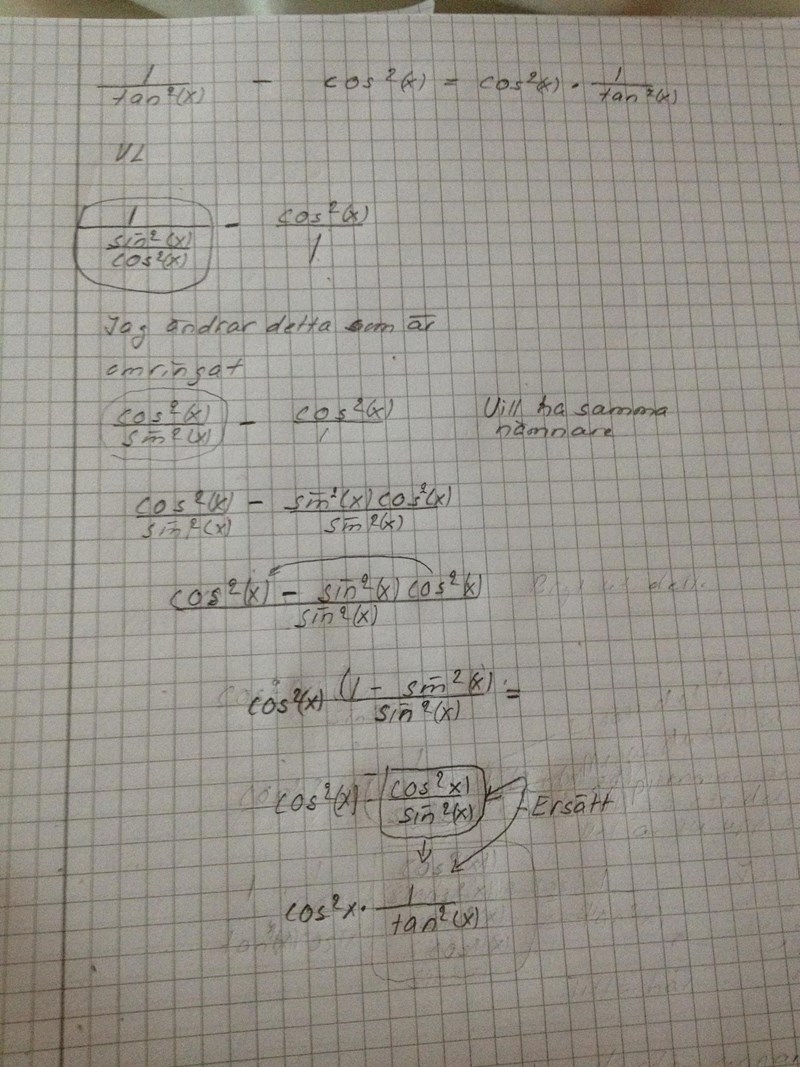 1/tan²(x) - cos²(x) = cos²(x) · 1/tan²(x)
VL
1/(sin²(x)/cos²(x)) - cos²(x)/1
Jag ändrar detta som är
omringat
cos²(x)/sin²(x) - cos²(x)/1 Vill ha samma
nämnare
cos²(x)/sin²(x) - sin²(x)cos²(x)/sin²(x)
(cos²(x) - sin²(x)cos²(x))/sin²(x)
cos²(x) (1 - sin²(x))/sin²(x) =
cos²(x) - cos²x)/sin²(x) Ersätt
cos²x · 1/tan²(x)